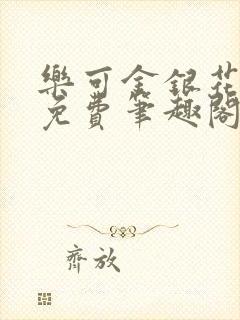 樂可金銀花
免費筆趣閣
齊放